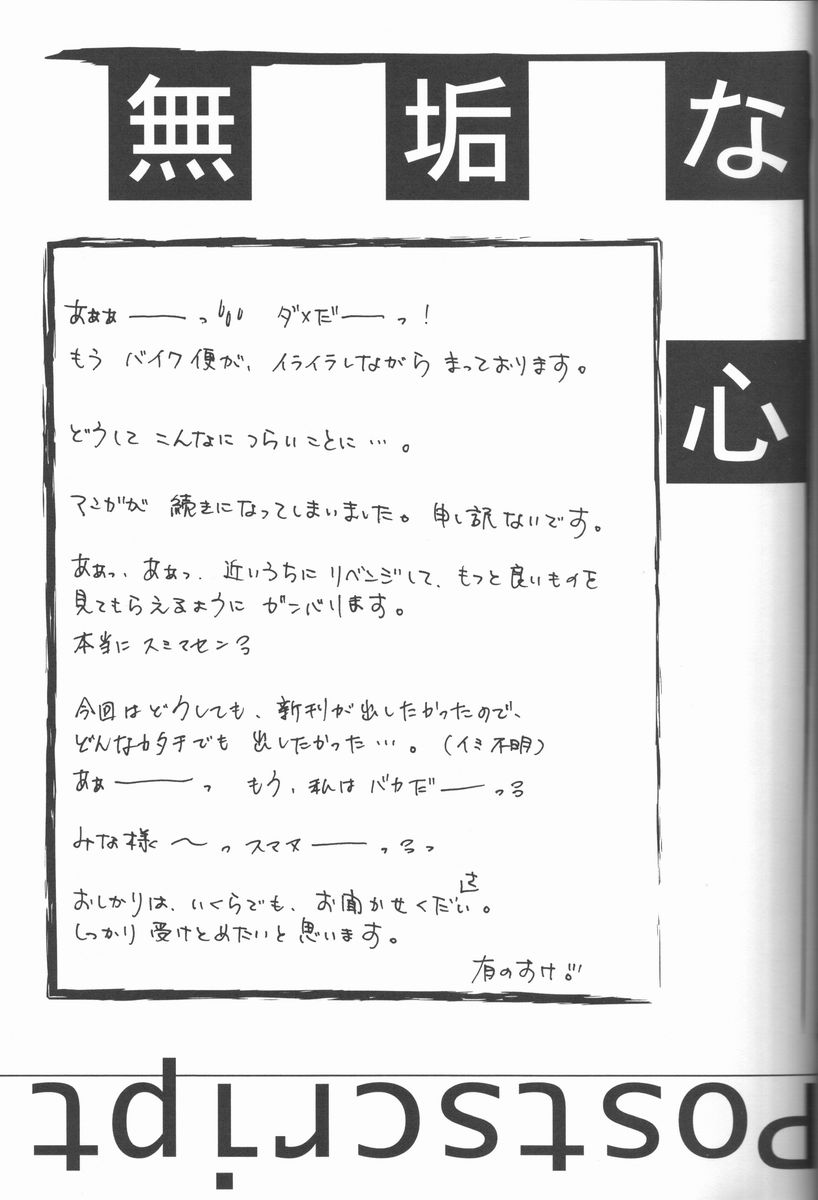 無垢な
心
あぁぁ――っ!!! ダメだ――っ!
もう バイク便が、イライラしながら まっております。
どうして こんなに つらいことに…。
マンガが 続きになってしまいました。申し訳ないです。
あぁっ、あぁっ、近いうちに リベンジして、もっと良いものを
見てもらえるように ガンバります。
本当に スミマセンろ
今回は どうしても、新刊が出したかったので、
どんなカタチでも 出したかった…。(イミ不明)
あぁ―――っ もう、私は バカだ――っろ
みな様 〜っ スマヌ――っろっ
おしかりは、いくらでも、お聞かせくださ い。
しっかり 受けとめたいと 思います。
有のすけ!!!
Postscript